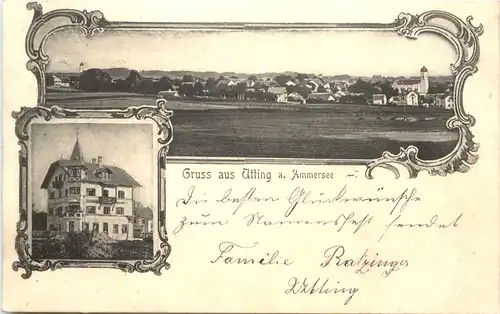 Gruss aus Utting a. Ammersee
Die besten Glückwünsche
zum Namensfest sendet
Familie Ratzinger
Utting